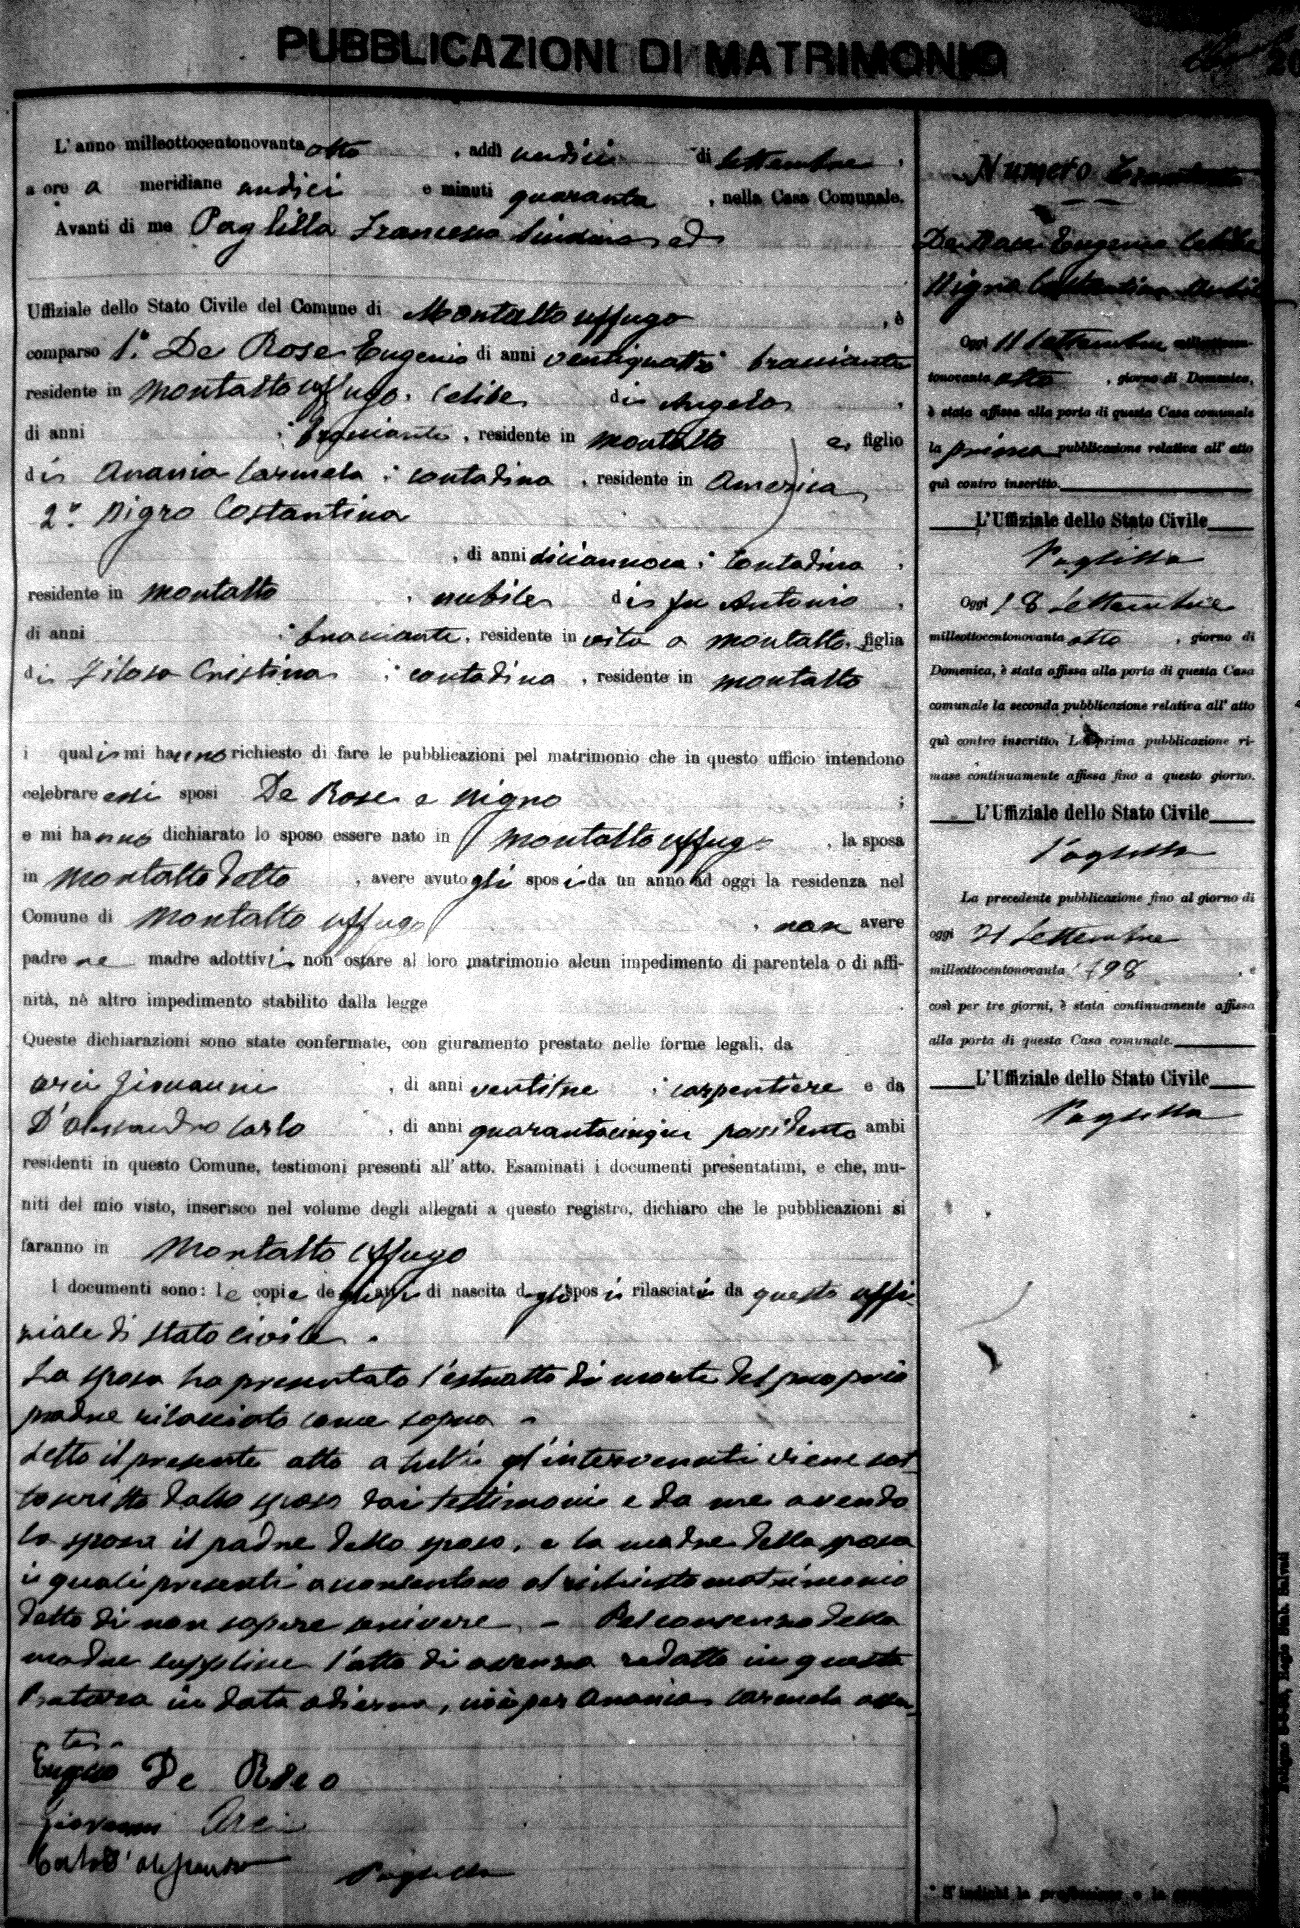 PUBBLICAZIONI DI MATRIMONIO
20
L'anno milleottocentonovanta otto , addì undici di Settembre ,
a ore a meridiane undici e minuti quaranta , nella Casa Comunale.
Avanti di me Paglilla Francesco Sindaco ed
Uffiziale dello Stato Civile del Comune di Montalto uffugo , è
comparso 1° De Rose Eugenio di anni ventiquattro bracciante
residente in Montalto uffugo, Celibe di Angelo ,
di anni : bracciante , residente in Montalto e figlio
di Anania Carmela : contadina , residente in America
2° Nigro Costantina
, di anni diciannove : Contadina ,
residente in Montalto , nubile di fu Antonio ,
di anni : bracciante, residente in vita a Montalto, figlia
di Filosa Cristina : contadina , residente in Montalto
i quali mi hanno richiesto di fare le pubblicazioni pel matrimonio che in questo ufficio intendono
celebrare essi sposi De Rose e Nigro ;
e mi hanno dichiarato lo sposo essere nato in Montalto uffugo , la sposa
in Montalto detto , avere avuto gli sposi da un anno ad oggi la residenza nel
Comune di Montalto uffugo , non avere
padre ne madre adottivi non ostare al loro matrimonio alcun impedimento di parentela o di affi-
nità, nè altro impedimento stabilito dalla legge .
Queste dichiarazioni sono state confermate, con giuramento prestato nelle forme legali, da
Arci Giovanni , di anni ventitre : carpentiere e da
D'Alessandro Carlo , di anni quarantacinque possidente ambi
residenti in questo Comune, testimoni presenti all'atto. Esaminati i documenti presentatimi, e che, mu-
niti del mio visto, inserisco nel volume degli allegati a questo registro, dichiaro che le pubblicazioni si
faranno in Montalto Uffugo
I documenti sono: le copie degli atti di nascita degli sposi rilasciati da questo uffi-
ziale di stato civile.
La sposa ha presentato l'estratto di morte del proprio
padre rilasciato come sopra -
Letto il presente atto a tutti gl'intervenuti viene sot-
toscritto dallo sposo dai testimoni e da me avendo
la sposa il padre dello sposo, e la madre della sposa
i quali presenti acconsentono al richiesto matrimonio
detto di non sapere scrivere. - Pel consenso della
madre supplisce l'atto di assenza redatto in questa
Pretura in data odierna, cioè per Anania Carmela assen-
te
Eugenio De Roso
Giovanni Arci
Carlo D'Alessandro
Paglilla
Numero
De Rose Eugenio Celibe
Nigro Costantina Nubile
Oggi 11 Settembre milleottocen-
tonovanta otto , giorno di Domenica,
è stata affissa alla porta di questa Casa comunale
la prima pubblicazione relativa all'atto
quì contro inscritto.
L'Uffiziale dello Stato Civile
Paglilla
Oggi 18 Settembre
milleottocentonovanta otto , giorno di
Domenica, è stata affissa alla porta di questa Casa
comunale la seconda pubblicazione relativa all'atto
quì contro inscritto. La prima pubblicazione ri-
mase continuamente affissa fino a questo giorno.
L'Uffiziale dello Stato Civile
Paglilla
La precedente pubblicazione fino al giorno di
oggi 21 Settembre
milleottocentonovanta 98 , e
così per tre giorni, è stata continuamente affissa
alla porta di questa Casa comunale.
L'Uffiziale dello Stato Civile
Paglilla
* S'indichi la professione o la condizione